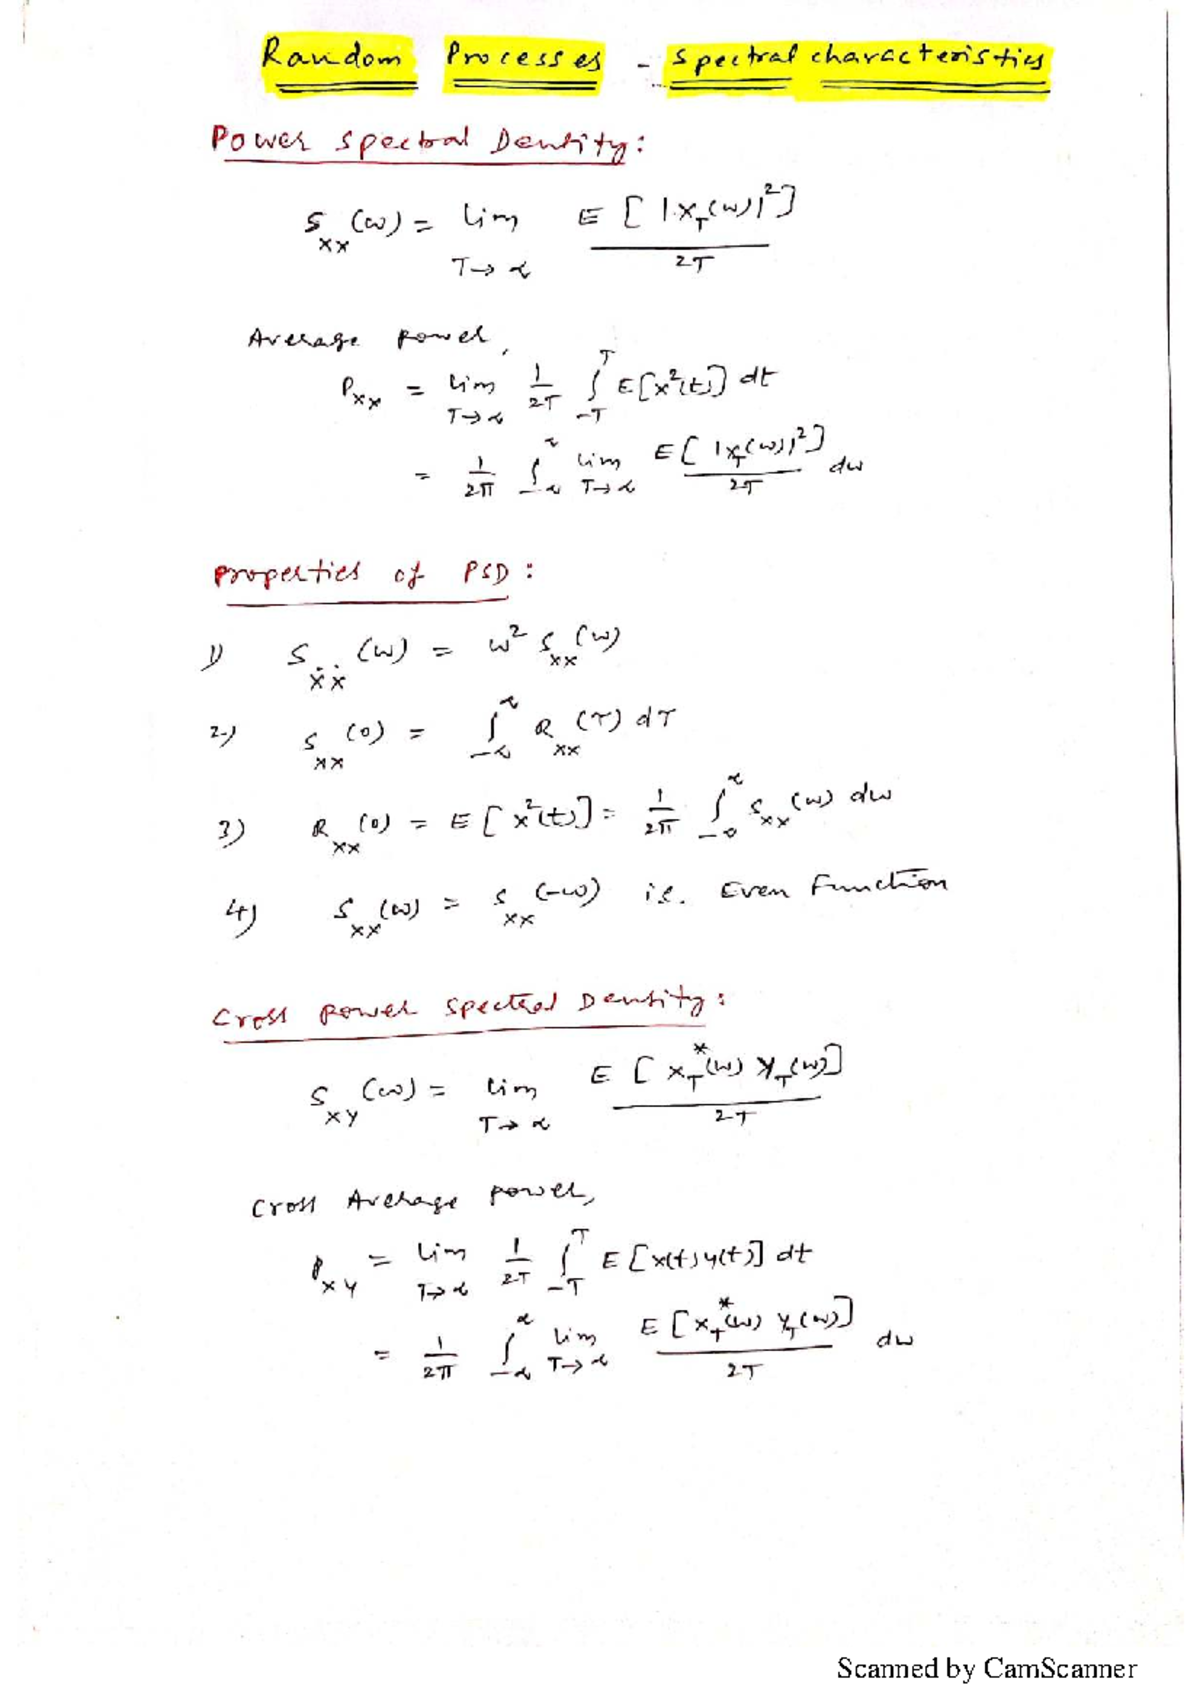 Random Processes - Spectral characteristics
Power Spectral Density:
S_XX(ω) = lim_{T→∝} E[|X_T(ω)|²] / 2T
Average power,
P_XX = lim_{T→∝} 1/2T ∫_{-T}^{T} E[x²(t)] dt
= 1/2π ∫_{-∝}^{∝} lim_{T→∝} E[|X_T(ω)|²] / 2T dω
Properties of PSD:
1) S_ẊẊ(ω) = ω² S_XX(ω)
2) S_XX(0) = ∫_{-∝}^{∝} R_XX(τ) dτ
3) R_XX(0) = E[x²(t)] = 1/2π ∫_{-∝}^{∝} S_XX(ω) dω
4) S_XX(ω) = S_XX(-ω) i.e. Even Function
Cross power spectral Density:
S_XY(ω) = lim_{T→∝} E[X_T*(ω) Y_T(ω)] / 2T
Cross Average power,
P_XY = lim_{T→∝} 1/2T ∫_{-T}^{T} E[x(t)y(t)] dt
= 1/2π ∫_{-∝}^{∝} lim_{T→∝} E[X_T*(ω) Y_T(ω)] / 2T dω
Scanned by CamScanner